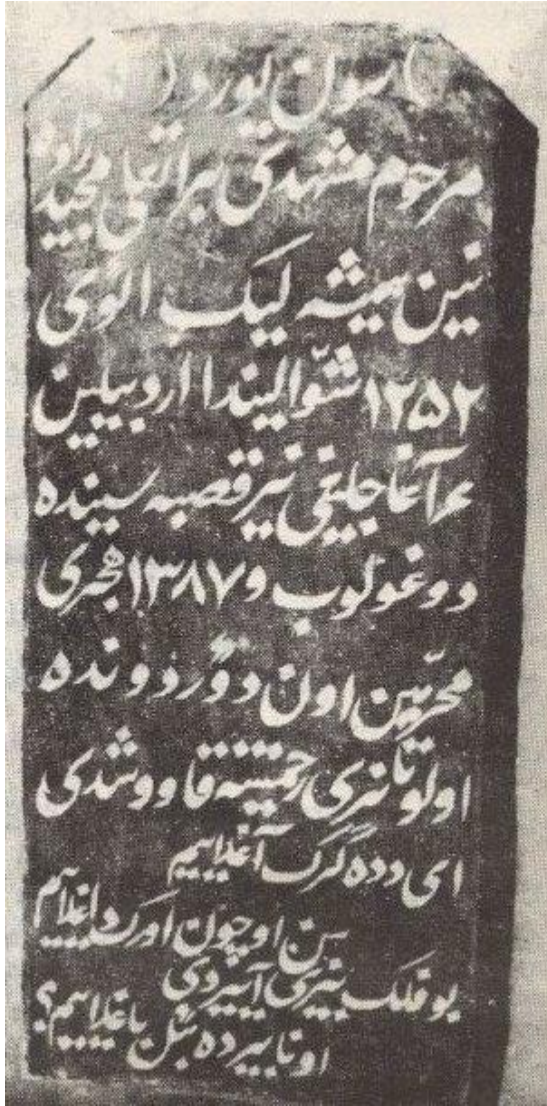 ( سون یورد )
مرحوم مشهدی براتعلی مجیدزاده
نین همیشه لیک ائوی
۱۲۵۲ شوّالیندا اردبیلین
آغاجلیغی نیر قصبه سینده
دوغولوب و ۱۳۸۷ هجری
محرّمین اون دؤرد ونده
اولو تانری رحمتینه قاووشدی
ای دده گرک آغلاییم
سن اوچون اورک داغلاییم
بو فلک بیزی آییردی
اونا بیرده بئل باغلاییم؟